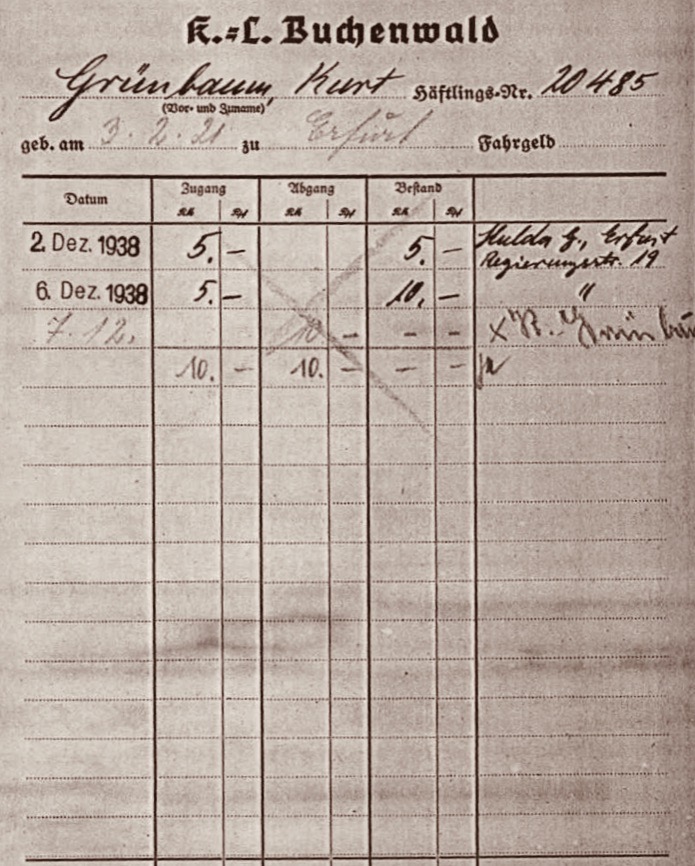 K.=L. Buchenwald
Grünbaum, Kurt Häftlings=Nr. 20485
(Vor- und Zuname)
geb. am 3. 2. 21 zu Erfurt Fahrgeld
Datum Zugang Abgang Bestand
RM Pf RM Pf RM Pf
2. Dez. 1938 5. – 5. – Hulda G., Erfurt
Regierungsstr. 19
6. Dez. 1938 5. – 10. – "
7. 12. 10 – – – x K. Grünbau
10. – 10. – – –